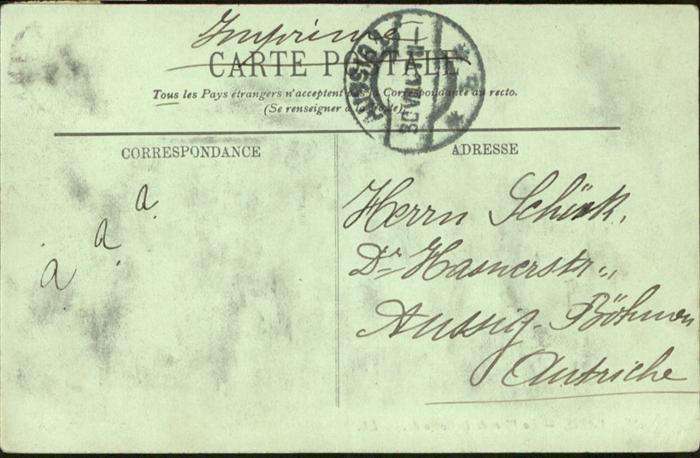 Imprimé
CARTE POSTALE
Tous les Pays étrangers n'acceptent pas la Correspondance au recto.
(Se renseigner à la Poste).
CORRESPONDANCE
ADRESSE
a
a
a
Herrn Schück,
Dr Hasnerstr.,
Aussig - Böhmen
Autriche